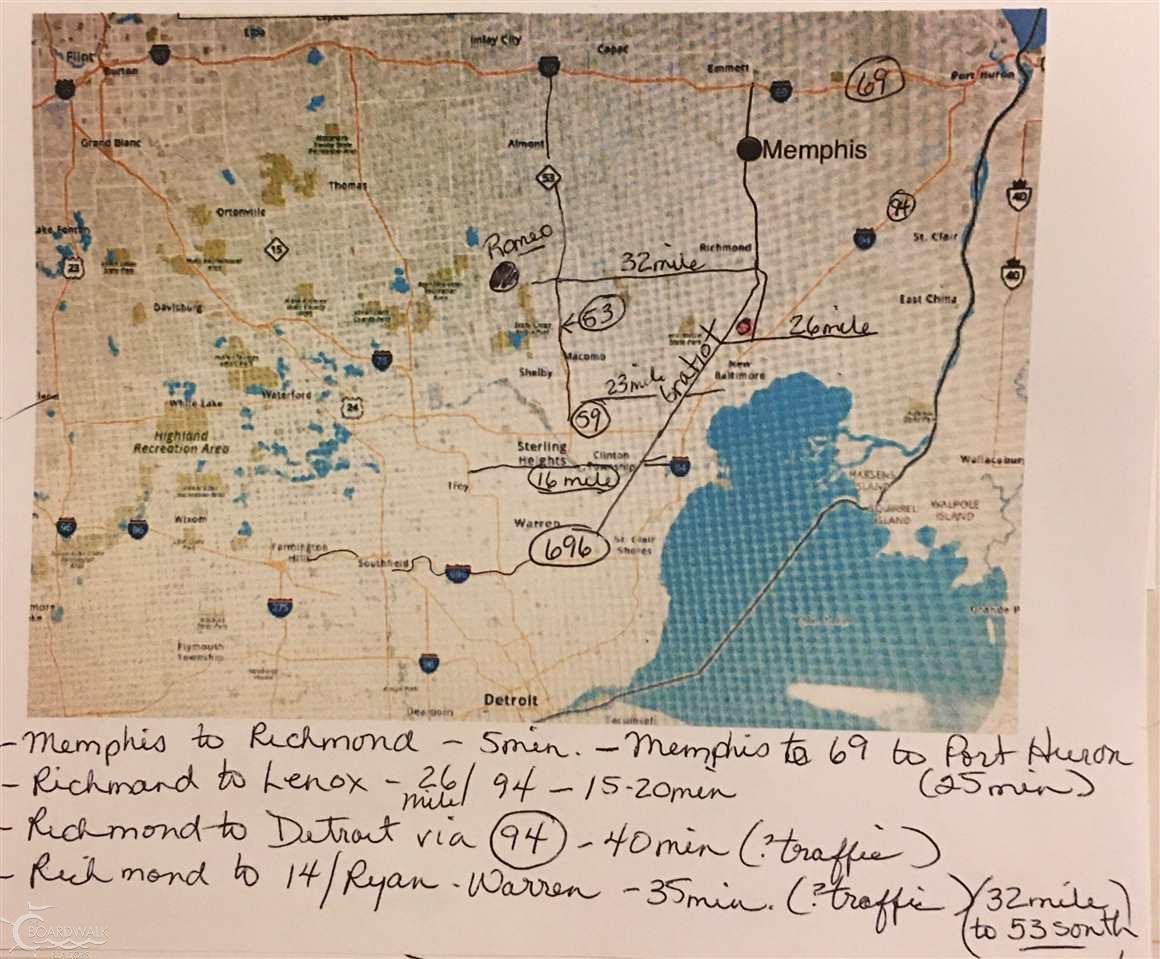 Elba
Imlay City
Capac
Flint
Burton
Emmett
69
Port Huron
Grand Blanc
Almont
Memphis
53
Thomas
40
94
Ortonville
Romeo
St. Clair
15
Richmond
32 mile
23
40
53
East China
Davisburg
26 mile
Macomb
75
Shelby
New
Baltimore
23 mile
Gratiot
White Lake
Waterford
24
59
Highland
Recreation Area
Sterling
Heights
Clinton
Township
16 mile
Troy
HARSENS
ISLAND
SQUIRREL
ISLAND
WALPOLE
ISLAND
Wixom
96
96
Warren
696
St. Clair
Shores
Farmington
Hills
Southfield
696
275
Plymouth
Township
Detroit
Dearborn
Tecumseh
- Memphis to Richmond - 5min. - Memphis to 69 to Port Huron
(25min)
- Richmand to Lenox - 26 mile/ 94 - 15-20min
- Richmond to Detroit via 94 - 40min (?traffic)
- Richmond to 14/Ryan - Warren - 35min. (?traffic) (32mile
to 53 south)
BOARDWALK